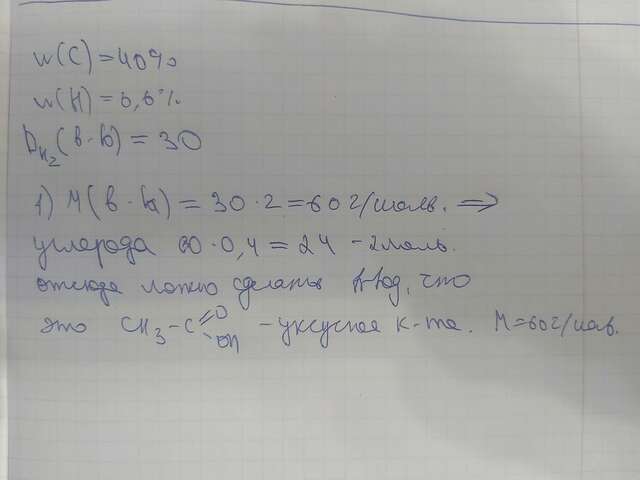 w(C) = 40%
w(H) = 6,6%
D_H2 (в-ва) = 30
1) M(в-ва) = 30 · 2 = 60 г/моль. ⇒
углерода 60 · 0,4 = 24 - 2 моль.
отсюда можно сделать вывод, что
это CH3-C=O OH - уксусная к-та. M = 60 г/моль.